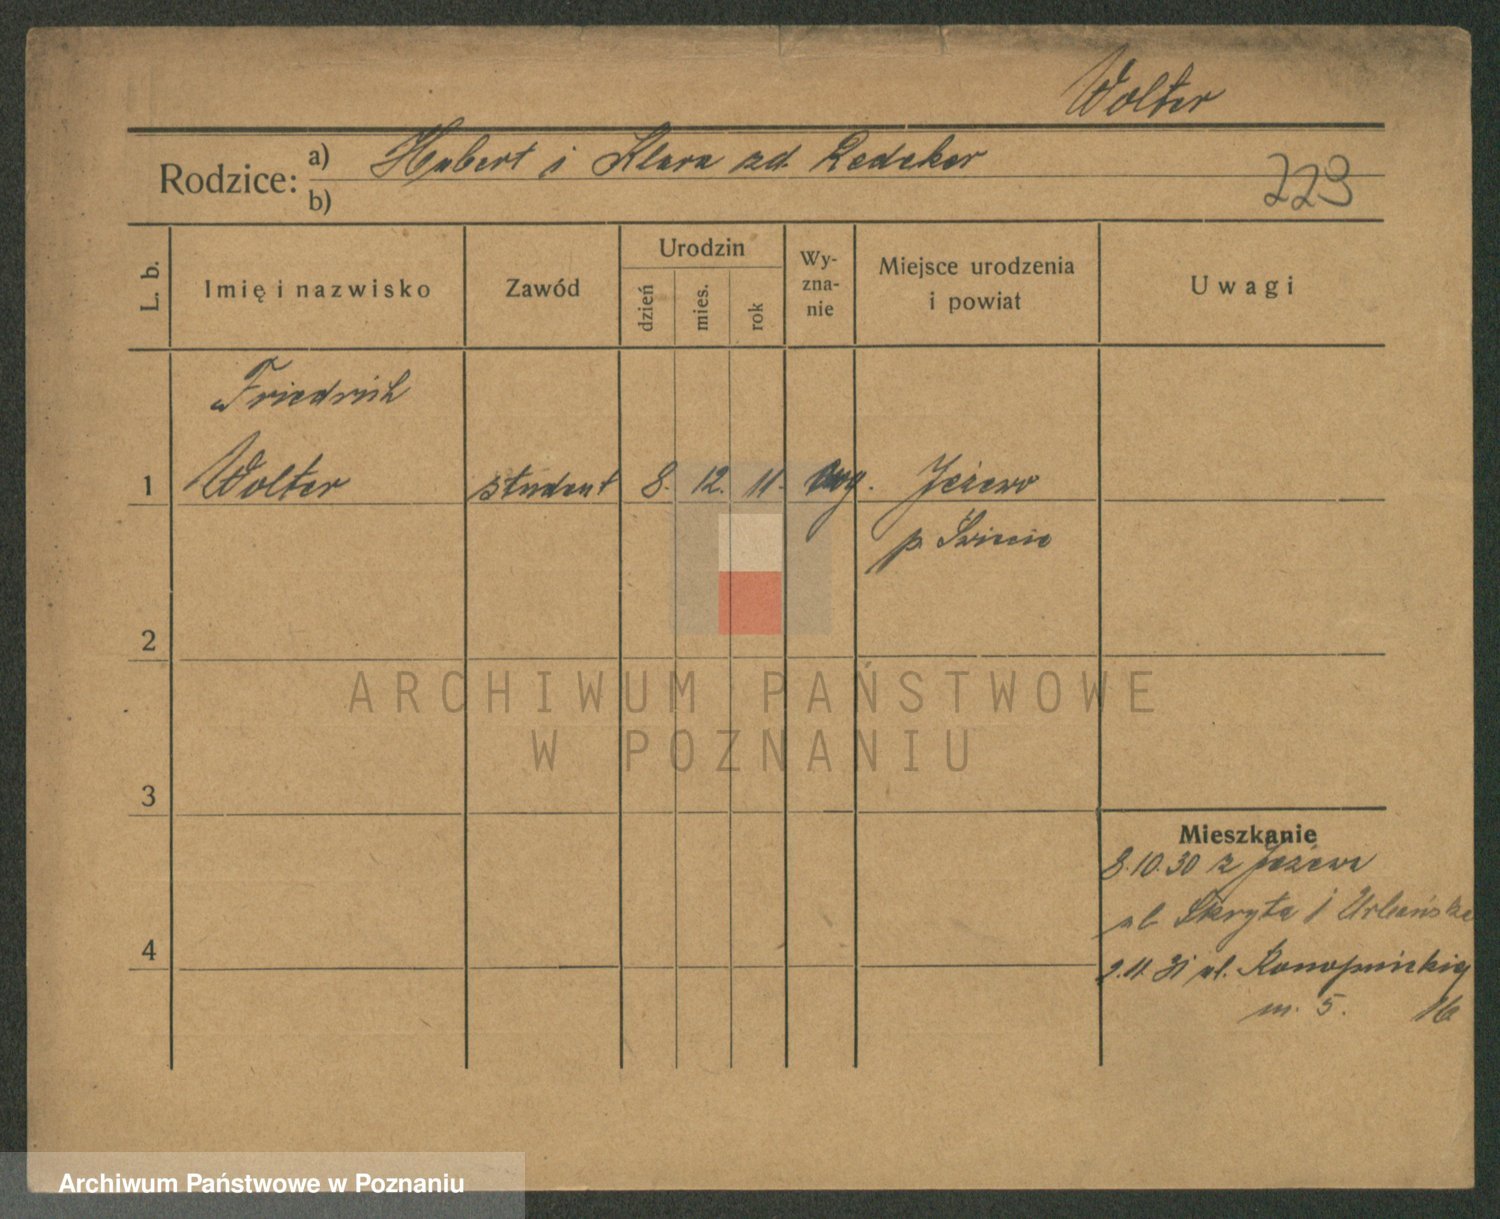 Wolter
Rodzice: a) Hubert i Klara zd. Redeker
b)
223
L. b.
Imię i nazwisko
Zawód
Urodzin
dzień
mies.
rok
Wy-
zna-
nie
Miejsce urodzenia
i powiat
Uwagi
Friedrich
1 Wolter student 8. 12. 11. ewg. Jeżewo
p. Świecie
2
3
4
Mieszkanie
8.10.30 z Jeżewa
ul. Skryta i Urbańska
2.11.31 ul. Konopnickiej
m. 5. 16
ARCHIWUM PAŃSTWOWE
W POZNANIU
Archiwum Państwowe w Poznaniu